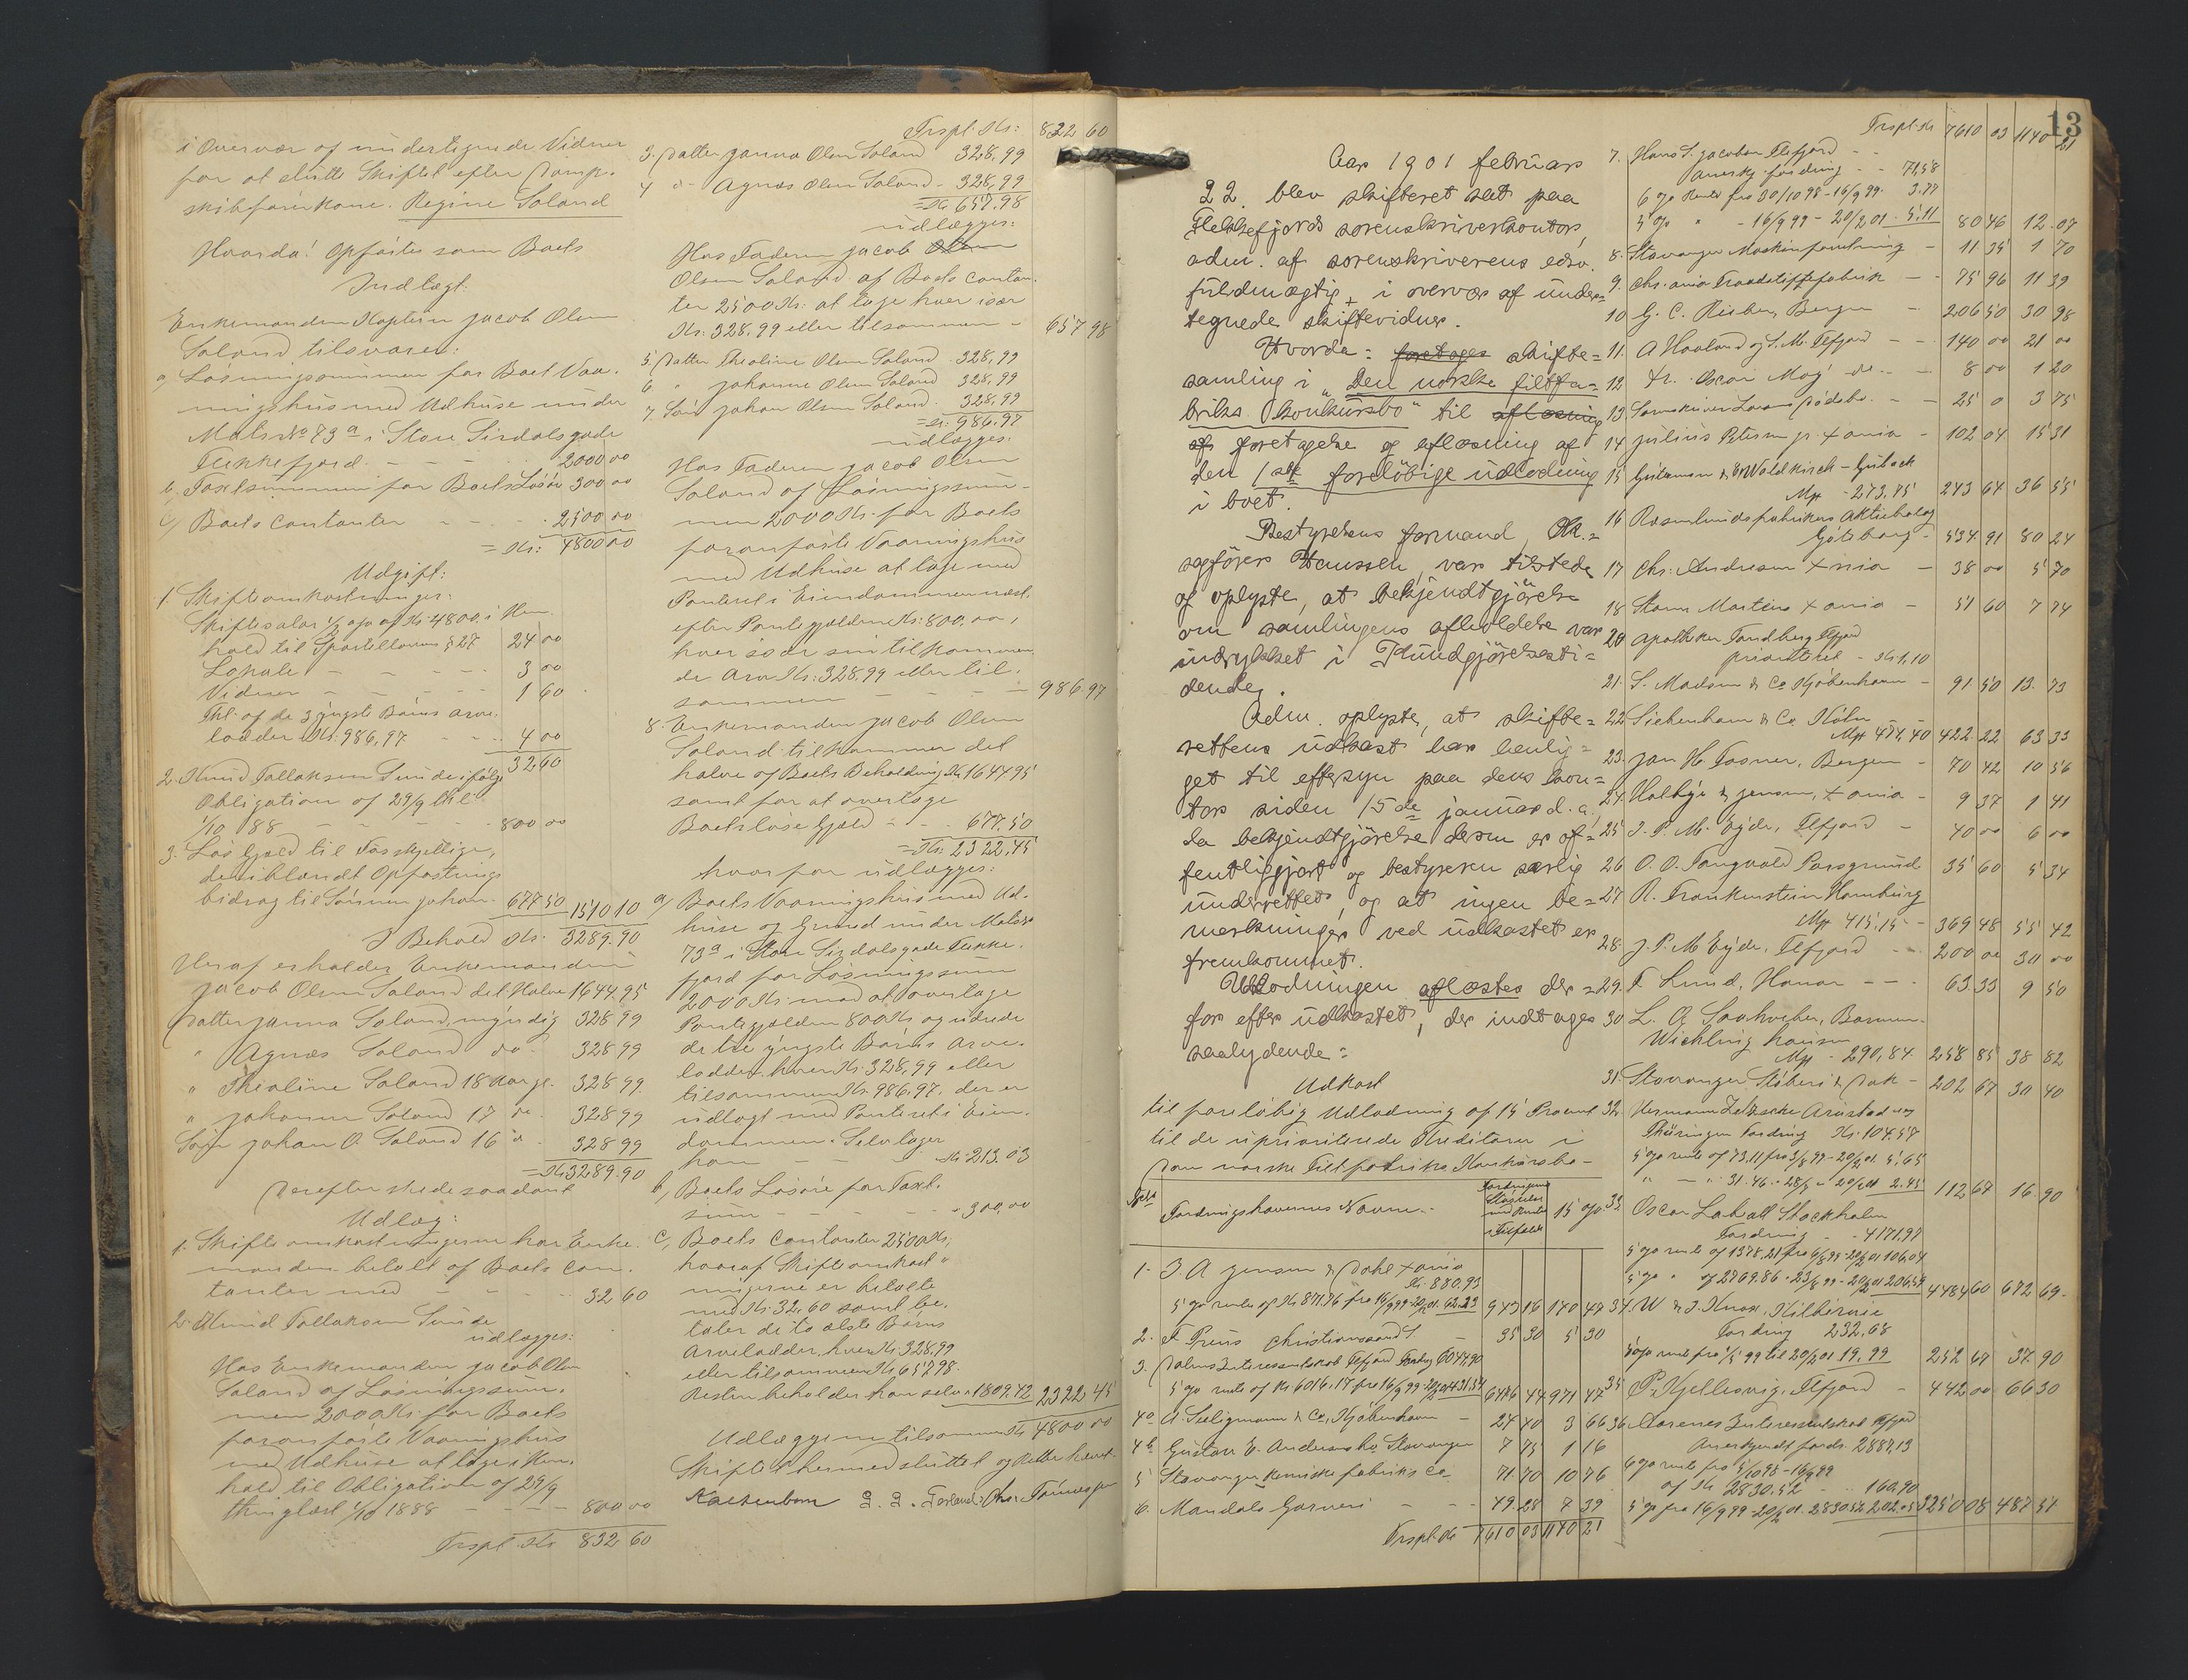 i Overvær af undertegnede Vidner
for at slutte Skiftet efter Damp-
skibsførerkone Regine Soland
Hvorda! Opførtes som Boets
Indtægt:
Enkemanden Kaptein Jacob Olsen
Soland tilsvarer:
a, Løsningssummen for Boet Vaa-
ningshus med Udhuse under
Mats No 73a i Store Sirdalsgade
Flekkefjord - - - 2000 00
b, Taxtsummen for Boets Løsøre 300 00
c, Boets Contanter - - - 2500 00
= Kr: 4800 00
Udgift:
1 Skifteomkostninger:
Skiftesalær ½ o/o af Kr. 4800. i Hen-
hold til Sportelloven § 27 24 00
Lokale - - - - 3 00
Vidner - - - - 1 60
Thl. af de 3 yngste Børns Arve-
lodder Kr. 986,97 - - 4 00
32 60
2. Knud Tallaksen Sunde ifølge
Obligation af 29/9 thl.
1/10 88 - - - - 800 00
3. Løs Gjæld til Forskjellige,
deriblandt Opfostrings
bidrag til Sønnen Johan. 677 50 1510 10
I Behold Kr. 3289.90
Heraf erholder Enkemanden
Jacob Olsen Soland det Halve 1644.95
Datter Janna Soland, myndig 328 99
" Agnes Soland do - 328 99
" Theoline Soland 18 Aar gl. 328 99.
" Johanne Soland 17 do - 328 99
Søn Johan O. Soland 16 do - 328 99
= Kr. 3289.90
Derefter skede saadant
Udlæg:
1. Skifteomkostningerne har Enke-
manden betalt af Boets Con-
tanter med - - - - 32 60
2. Knud Tallaksen Sunde
udlægges:
Hos Enkemanden Jacob Olsen
Soland af Løsningssum-
men 2000 Kr. for Boets
foranførte Vaaningshus
med Udhuse at tage i Hen-
hold til Obligation af 29/9
thinglæst 1/10 1888 - - - 800 00
Trspt. Kr. 832 60
Trspt. Kr: 832 60
3. Datter Janna Olsen Soland 328,99
4 do - Agnes Olsen Soland - 328,99
= Kr 657.98
udlægges:
Hos Faderen Jacob Olsen
Olsen Soland af Boets Contan-
ter 2500 Kr. at tage hver især
Kr. 328.99 eller tilsammen - 657 98
5 Datter Theoline Olsen Soland 328,99
6. " Johanne Olsen Soland 328,99
7. Søn Johan Olsen Soland. 328,99
= Kr: 986.97
udlægges:
Hos Faderen Jacob Olsen
Soland af Løsningssum-
men 2000 Kr. for Boets
foranførte Vaaningshus
med Udhuse at tage med
Panteret i Eiendommen næst
efter Pantegjælden Kr: 800,00,
hver især sin tilkommen-
de Arv Kr: 328,99 eller til-
sammen - - - - 986.97
8. Enkemanden Jacob Olsen
Soland tilkommer det
halve af Boets Beholdning Kr 1644.95
samt for at overtage
Boets løse Gjæld - - 677.50
= Kr: 2322.45
hvorfor udlægges:
a) Boets Vaaningshus med Ud-
huse og Grund under Mats No
73a i Store Sirdalsgade Flekke-
fjord for Løsningssum
2000 Kr. mod at overtage
Pantegjælden 800 Kr og udrede
de tre yngste Børns Arve-
lodder, hver Kr. 328,99 eller
tilsammen Kr. 986.97. der er
udlagt med Panteret i Eien-
dommen. Selv tager
han - - - Kr. 213.03
b, Boets Løsøre for Taxt-
sum - - - - 300,00
c, Boets Contanter 2500 Kr,
hvoraf Skifteomkost-
ningerne er betalte
med Kr. 32,60 samt be-
taler de to ældste Børns
Arvelodder, hver Kr. 328,99
eller tilsammen Kr 657.98.
Resten beholder han selv. 1809.42 2322 45
Udlæggene tilsammen Kr 4800 00
Skiftet hermed sluttet og Retten hævet.
13
Aar 1901 februar
22. blev skifteret sat paa
Flekkefjords sorenskriverkontor,
adm. af sorenskriverens edsv.
fuldmægtig, i overvær af under=
tegnede skiftevidner.
Hvorda: foretages skifte=
samling i "Den norske filtfa=
briks konkursbo" til aflæsning
af foretagelse og aflæsning af
den 1ste foreløbige udlodning
i boet.
Bestyrelsens formand, Ov.=
sagfører Hanssen, var tilstede
og oplyste, at bekjendtgjørelse
om samlingens afholdelse var
indrykket i Kundgjørelsesti=
dende.
Adm. oplyste, at skifte=
rettens udkast har henlig=
get til eftersyn paa dens kon=
tor siden 15de januar d. a.,
da bekjendtgjørelse derom er of=
fentliggjort og bestyreren særlig
underrettet, og at ingen be=
merkninger ved udkastet er
fremkommet.
Udlodningen aflæstes der=
for efter udkastet, der indtages
saalydende:
Udkast
til foreløbig Udlodning af 15 Procent
til de uprioriterede Kreditorer i
Den norske Filtfabriks Konkursbo -
Fordringshavernes Navne - 15 o/o
1. I A Jensen & Dahl Xania
Kr. 880,93
5 o/o rente af Kr 871.76 fra 16/9 99-20/2 01. 62.23 943 16 140 47
2. F Preus Christianssand S. - 35 30 5 30
3. Dalens Interessentskab Flfjord Fordrg 6047,90
5 o/o rente af Kr 6016.17 fra 16/9 99-20/2 01 431.54 6476 44 971 47
4a A. Seeligmann & Co, Kjøbenhavn - 24 40 3 66
4b Gustav E. Andersen & Co Stavanger 7 75 1 16
5 Stavanger Kemiske fabriks Co 71 70 10 76
6. Mandals Garveri - - - 49.28 7 39
Trspt. Kr 7610 03 1140 21
Trspt. Kr 7610 03 1140 21
7. Hans S. Jacobsen Flfjord - -
Anerkj. fordring - - 71,58
6 o/o Rente fra 30/10 98 - 16/9 99. 3.77
5 o/o " - 16/9 99 - 20/2 01 - 5.11 80 46 12.07
8. Stavanger Maskinforretning - 11 35 1 70
9. Chr.ania Traadstiftefabrik - - 75 96 11 39
10 G. C. Rieber, Bergen - 206 50 30 98
11. A Haaland & S. M. Flfjord - - 140 00 21 00
12 Fr. Oscar Mog do - - 8 00 1 20
13 Sorenskriver Dødsbo. - - 25 0 3 75
14 Julius Petersen jr. Xania - 102 04 15 31
15 Gützmann & Waldkirch - Gubach
Mp - 273.75 243 64 36 55
16 Rosenlundsfabrikens Aktiebolag
Göteborg - 534 91 80 24
17 Chr. Andresen Xania - 38 00 5 70
18 Martens Xania - 51 60 7 74
20 Apotheker Tandberg Flfjord
prioriteret - Kr 1,10
21. S. Madsen & Co Kjøbenhavn - 91 50 13. 73
22 Siebenhaar & Co Köln
Mp 474,40 422 22 63 33
23. Jan H. Fasmer, Bergen - 70 42 10 56
24. Holbye & Jensen, Xania - 9 37 1 41
25 J. P. M. Eyde, Flfjord - 40 00 6 00
26 O. O. Tangvald Porsgrund 35 60 5 34
27 R. Frankenstein Hamburg
Mp 415,15 - 369 48 55 42
28. J. P. M Eyde. Flfjord - - 200 00 30 00
29. F Lund, Hanar - - - 63 33 9 50
30 L. A Barmen-
Wichlinghausen
Mp - 290,84. 258 85 38 82
31. Stavanger Støberi & Dok - 202 67 30 40
32 Hermann Arnstadt
Thüringen Fordring Kr. 104.57
5 o/o rente af 73.11 fra 3/8 99-20/2 01. 5,65
" - " 31.46. - 28/7 - 20/2 01 2.45 112 67 16.90
33 Oscar Stockholm
Fordring - - 4171,97
5 o/o rente af 1378.21 fra 6/8 99-20/2 01 106,04
5 o/o " af 2769.86 - 23/8 99-20/2 01 206.59 4484 60 672 69-
34. W & J. Knox, Kilbirnie
Fordring 232,68
5 o/o rente fra 1/5 99 til 20/2 01 19,99 252 67 37.90
35 P. Kjellesvig, Flfjord - 442 00 66 30
36 Aarenes Interessentskab Flfjord
Anerkjendt fordr. 2887,13
6 o/o rente fra 5/10 98 - 16/9 99
af Kr 2830.52 - - 160,90
5 o/o fra 16/9 99-20/2 01. 2830.52 202.05 3250 08 487 51